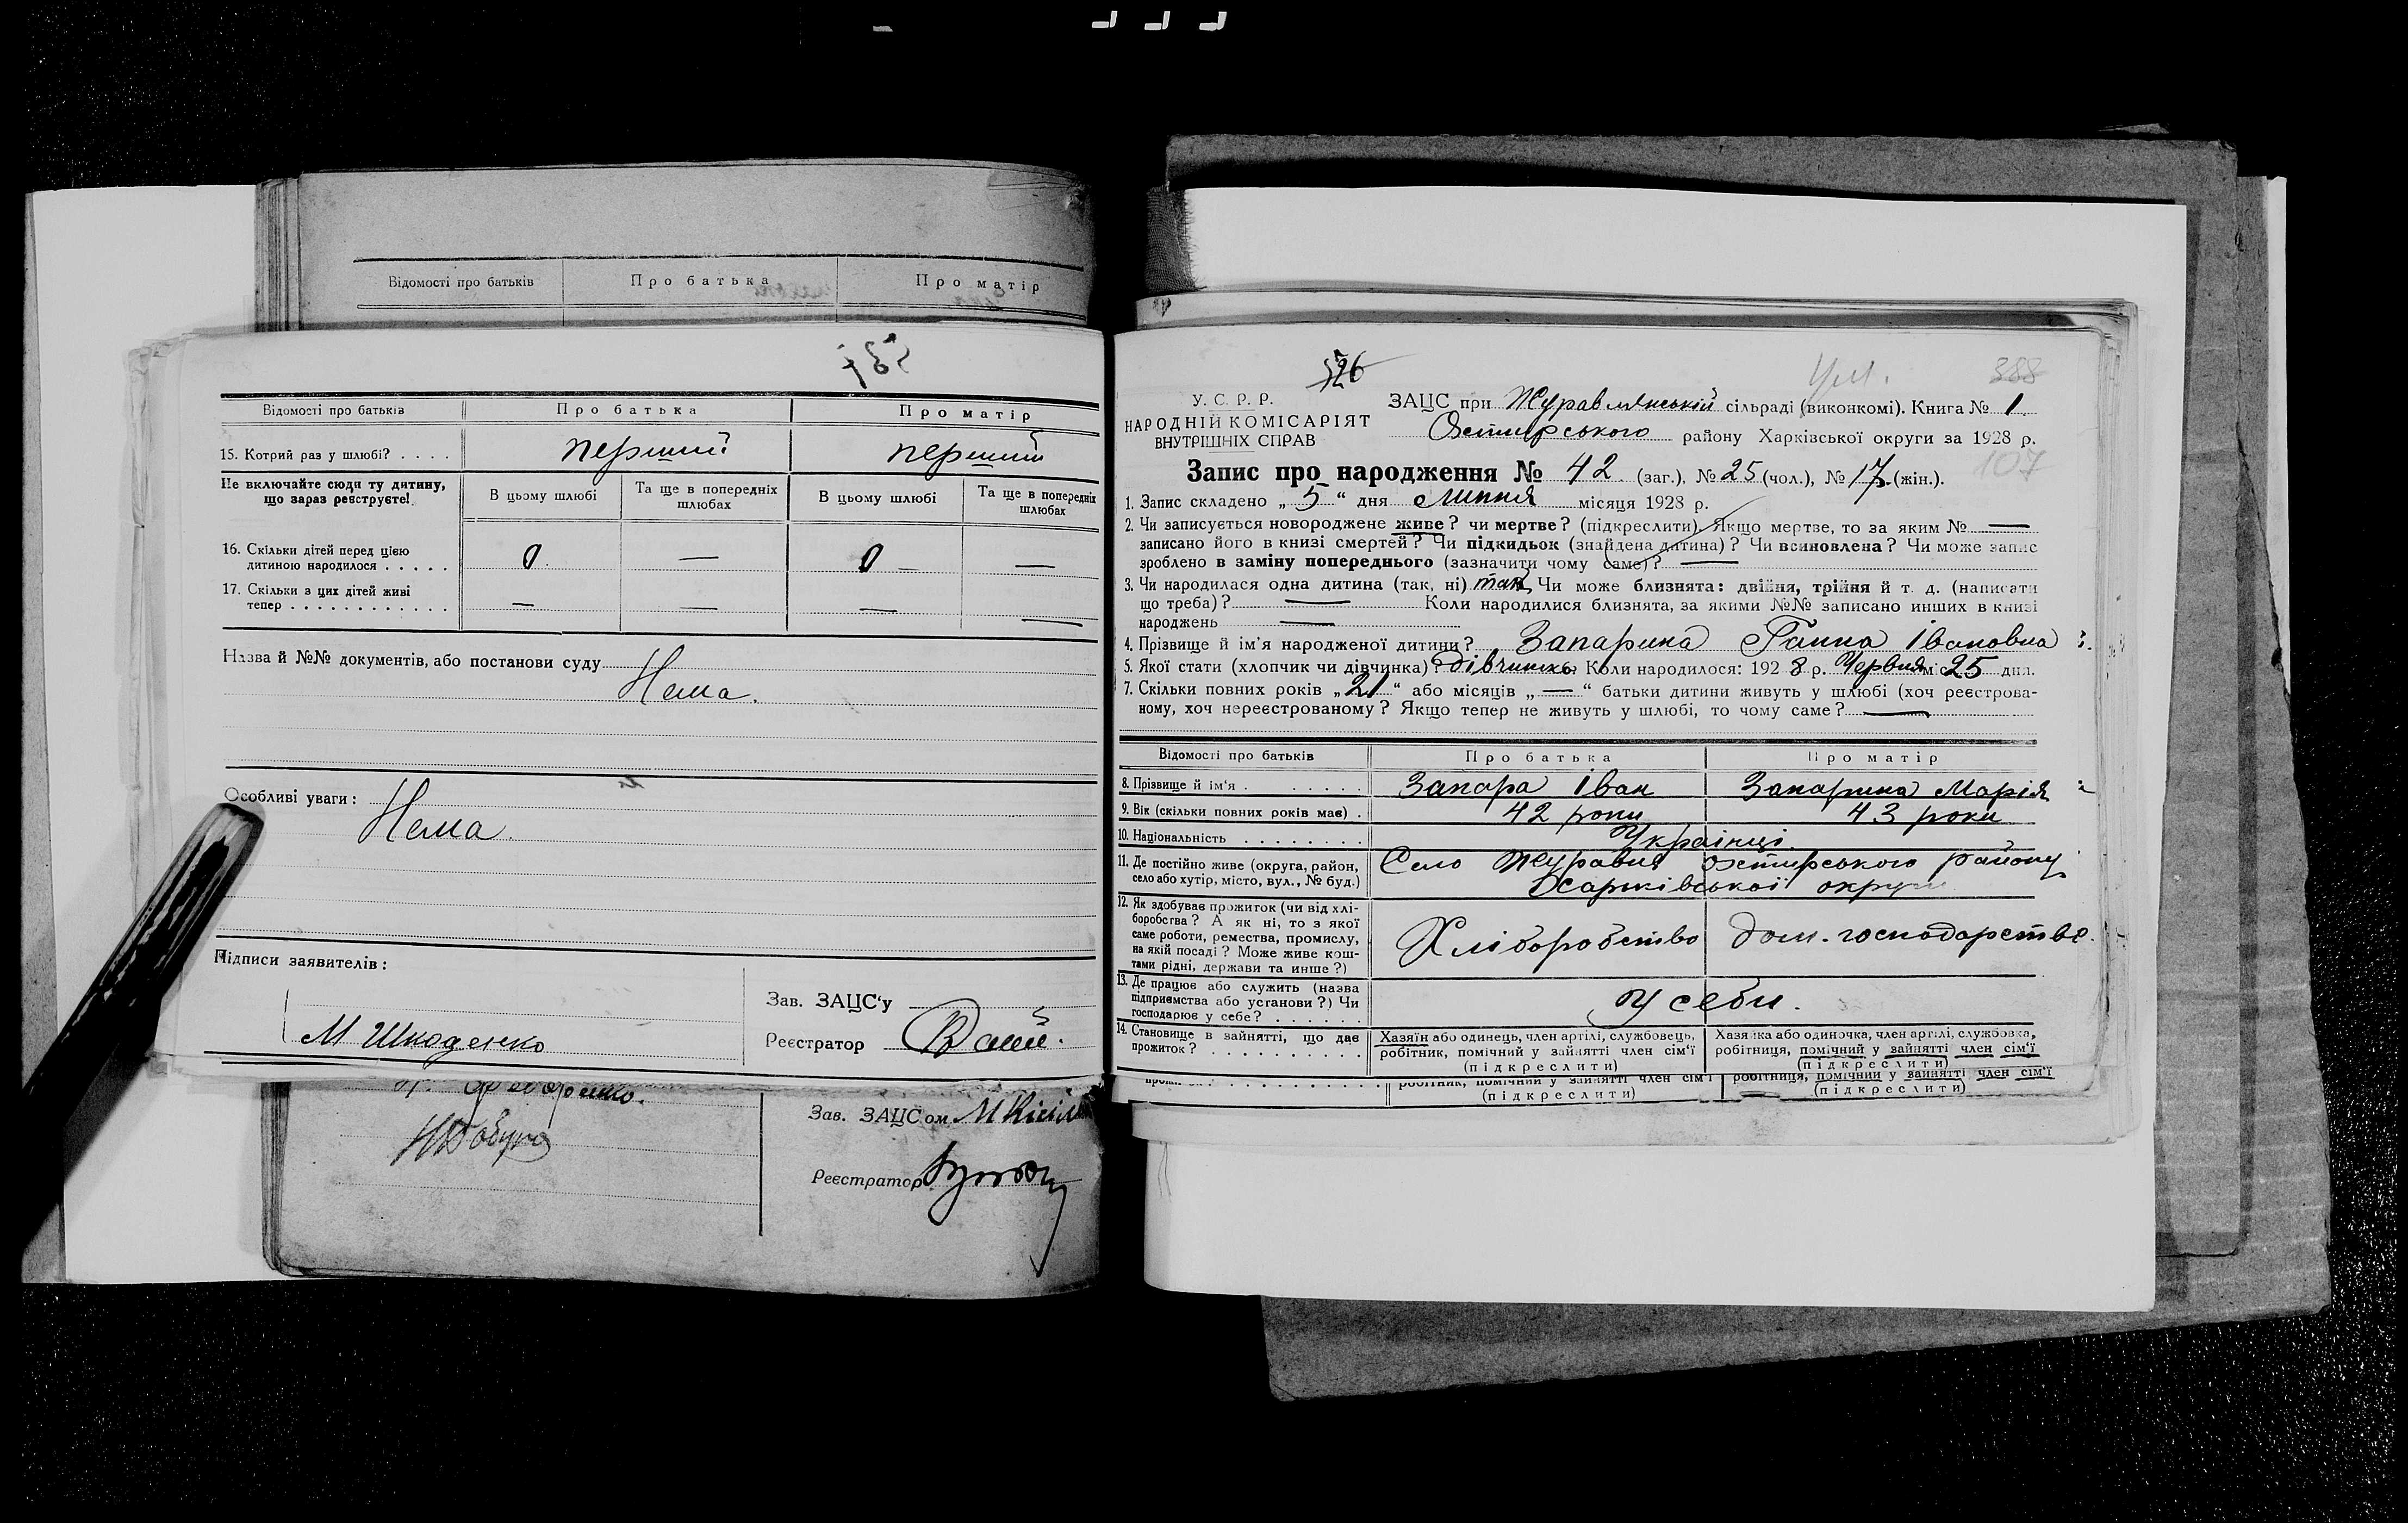 Відомості про батьків Про батька Про матір
Відомості про батьків Про батька Про матір
15. Котрий раз у шлюбі? . . . . перший перший
Не включайте сюди ту дитину, що зараз реєструєте!
В цьому шлюбі Та ще в попередніх шлюбах В цьому шлюбі Та ще в попередніх шлюбах
16. Скільки дітей перед цією
дитиною народилося . . . . . 0. — 0 — —
17. Скільки з цих дітей живі
тепер . . . . . . . . . . . . . — — — —
Назва й №№ документів, або постанови суду
Нема.
Особливі уваги:
Нема.
Підписи заявителів:
М Шкоденко
Зав. ЗАЦС'у
Реєстратор
Зав. ЗАЦСом
Реєстратор
526
388
У. С. Р. Р.
НАРОДНІЙ КОМІСАРІЯТ
ВНУТРІШНІХ СПРАВ
ЗАЦС при Журавлянській сільраді (виконкомі). Книга № 1.
Охтирського району Харківської округи за 1928 р.
107
Запис про народження № 42 (заг.), № 25 (чол.), № 17 (жін.).
1. Запис складено „ 5 “ дня Липня місяця 1928 р.
2. Чи записується новороджене живе? чи мертве? (підкреслити). Якщо мертве, то за яким № —
записано його в книзі смертей? Чи підкидьок (знайдена дитина)? Чи всиновлена? Чи може запис
зроблено в заміну попереднього (зазначити чому саме)? —
3. Чи народилася одна дитина (так, ні) так Чи може близнята: двійня, трійня й т. д. (написати
що треба)? — Коли народилися близнята, за якими №№ записано инших в книзі
народжень —
4. Прізвище й ім'я народженої дитини? Запарина Ганна Івановна
5. Якої стати (хлопчик чи дівчинка)? дівчинка Коли народилося: 1928 р. Червня міс 25 дня.
7. Скільки повних років „ 21 “ або місяців „ — “ батьки дитини живуть у шлюбі (хоч реєстрова-
ному, хоч нереєстрованому? Якщо тепер не живуть у шлюбі, то чому саме? —
Відомості про батьків Про батька Про матір
8. Прізвище й ім'я . . . . . . . Запара Іван Запарина Марія
9. Вік (скільки повних років має) . 42 роки 43 роки
10. Національність . . . . . . . . Українці.
11. Де постійно живе (округа, район, Село Журавне Охтирського району
село або хутір, місто, вул., № буд.) Харківської округи
12. Як здобуває прожиток (чи від хлі-
боробства? А як ні, то з якої
саме роботи, ремества, промислу, Хліборобство дом. господарство.
на якій посаді? Може живе кош-
тами рідні, держави та инше?)
13. Де працює або служить (назва
підприємства або установи?) Чи У себи.
господарює у себе? . . . . . .
14. Становище в зайнятті, що дає Хазяїн або одинець, член артілі, службовець, Хазяйка або одиночка, член артілі, службовка,
прожиток? . . . . . . . . . . робітник, помічний у зайнятті член сім'ї робітниця, помічний у зайнятті член сім'ї
(підкреслити) (підкреслити)
робітник, помічний у зайнятті член сім'ї робітниця, помічний у зайнятті член сім'ї
(підкреслити) (підкреслити)